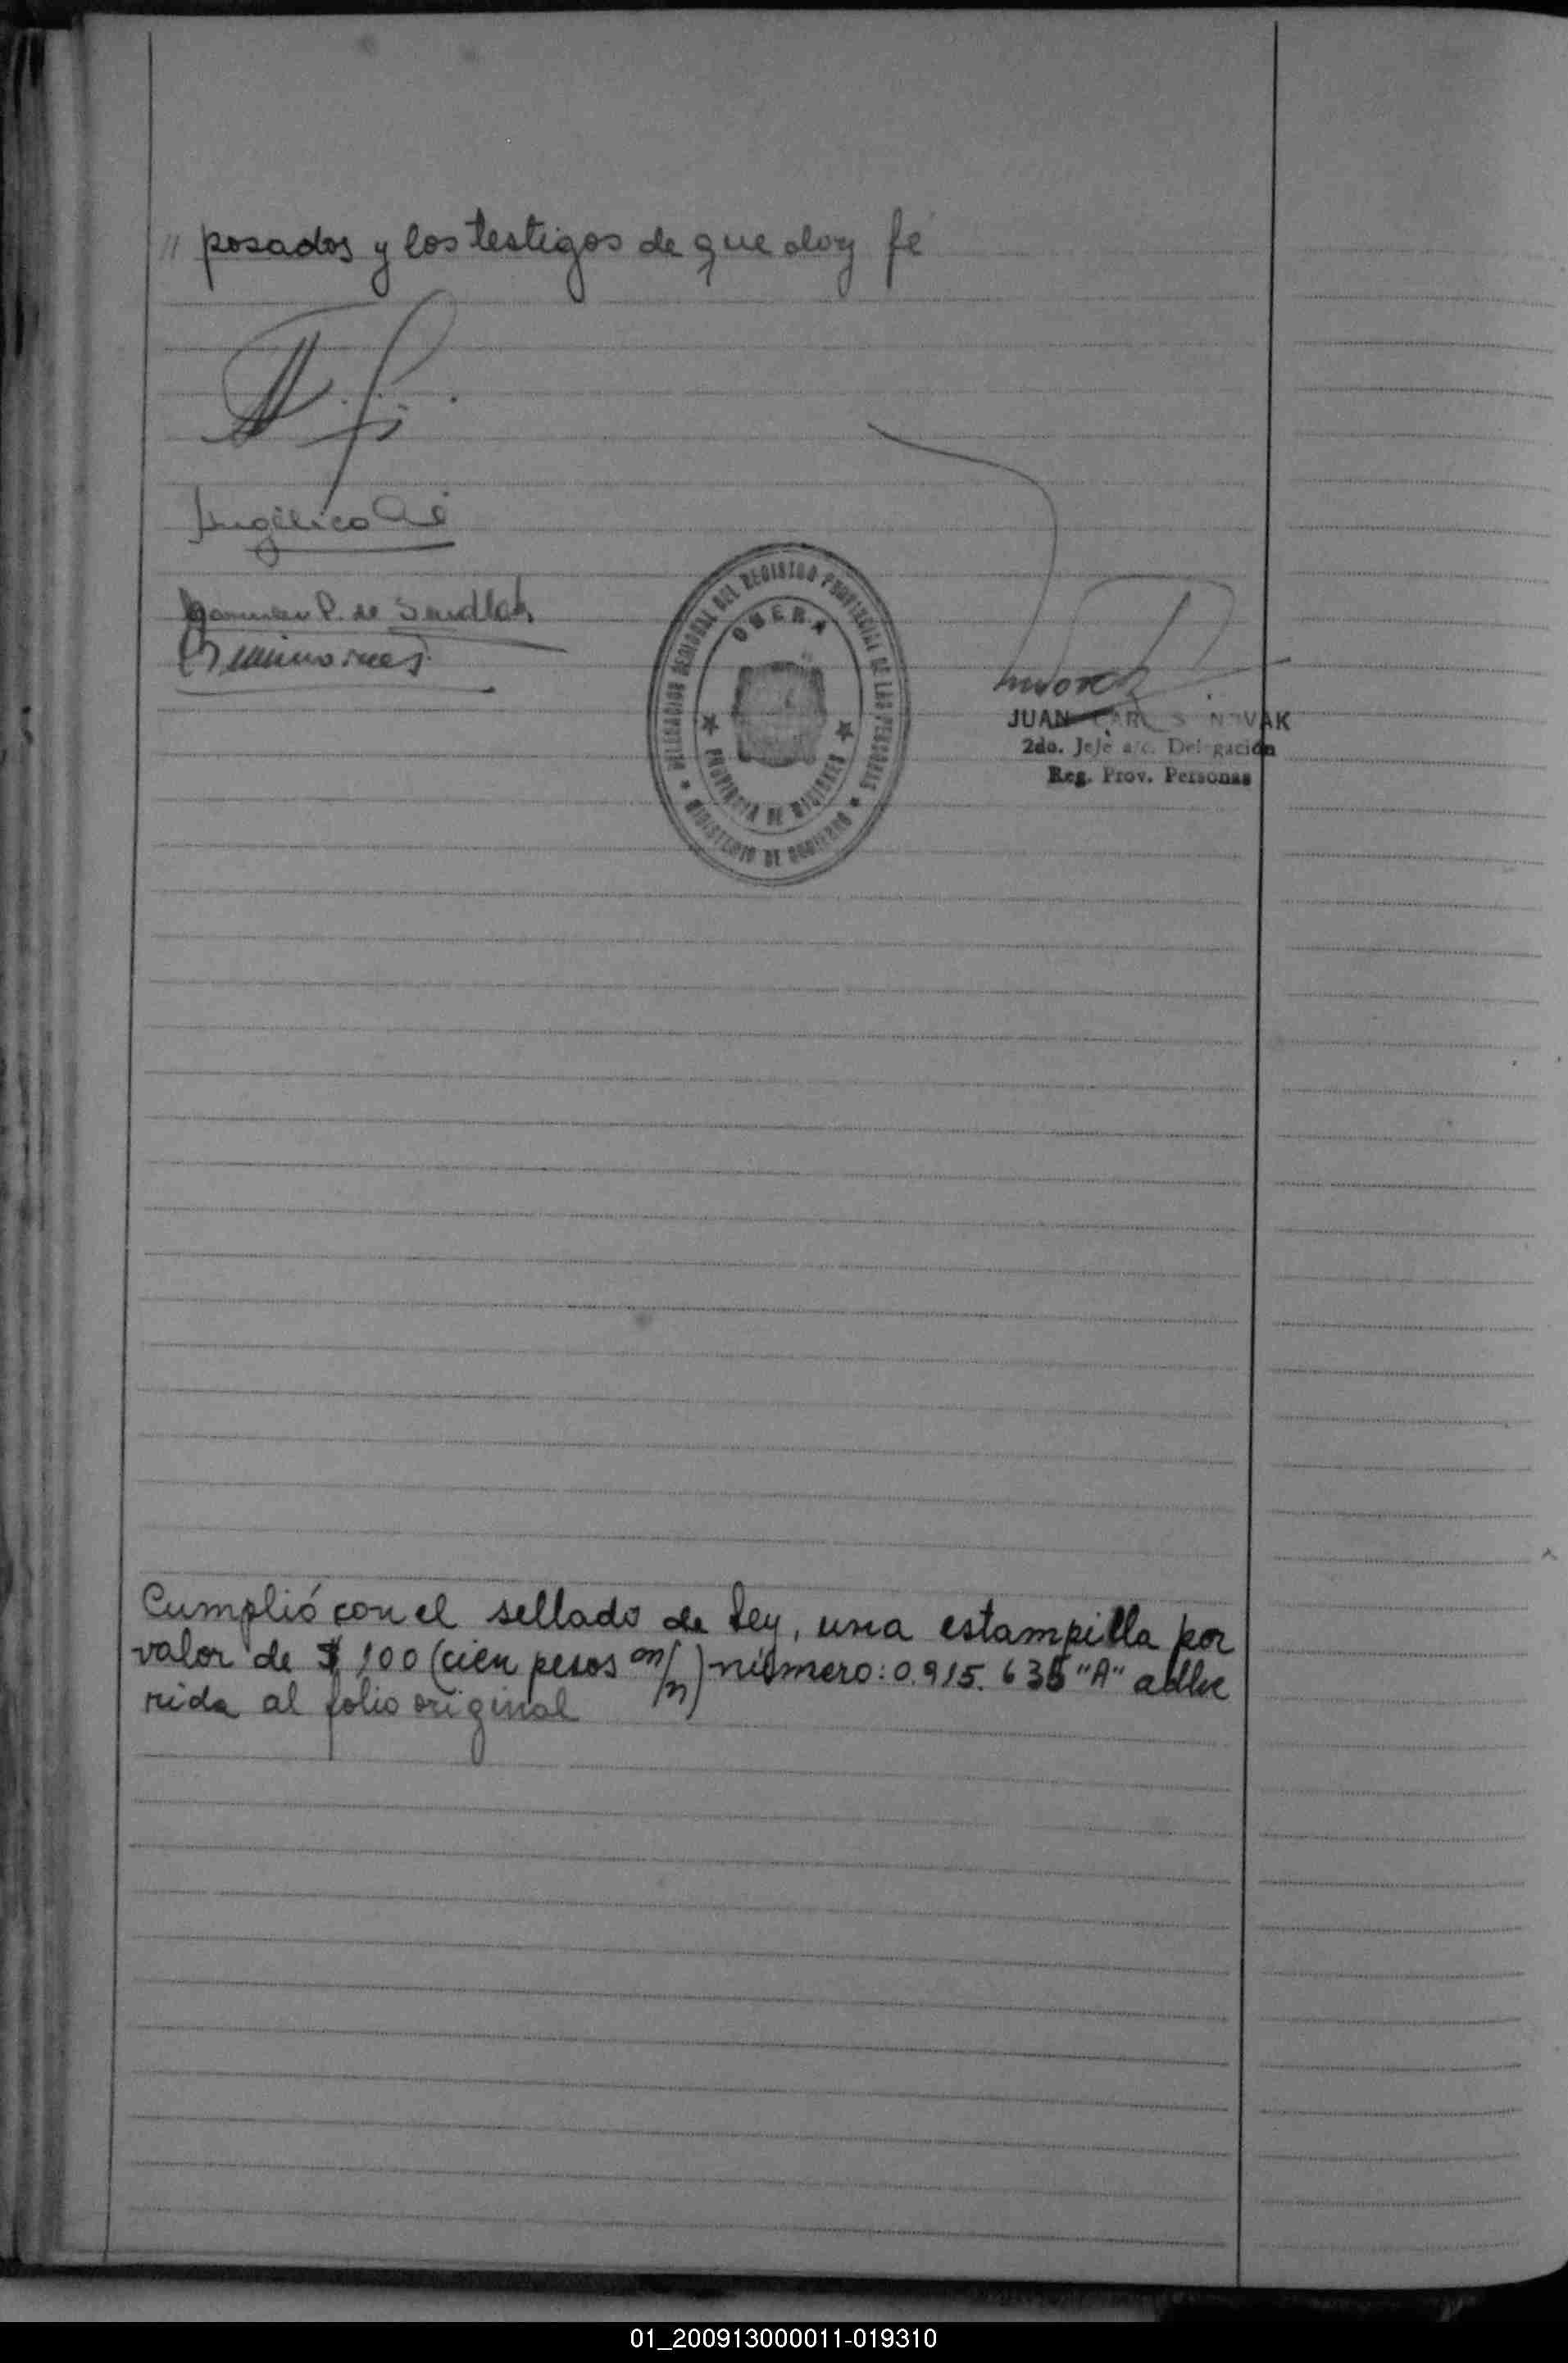 // posados y los testigos de que doy fé
Angélica
P. de Sendlak
DELEGACION REGIONAL DEL REGISTRO PROVINCIAL DE LAS PERSONAS
OBERA
PROVINCIA DE MISIONES
MINISTERIO DE GOBIERNO
JUAN CARLOS NOVAK
2do. Jefe a/c. Delegación
Reg. Prov. Personas
Cumplió con el sellado de Ley, una estampilla por
valor de $ 100 (cien pesos m/n) número: 0.915.635 "A" adhe
rida al folio original
01_200913000011-019310